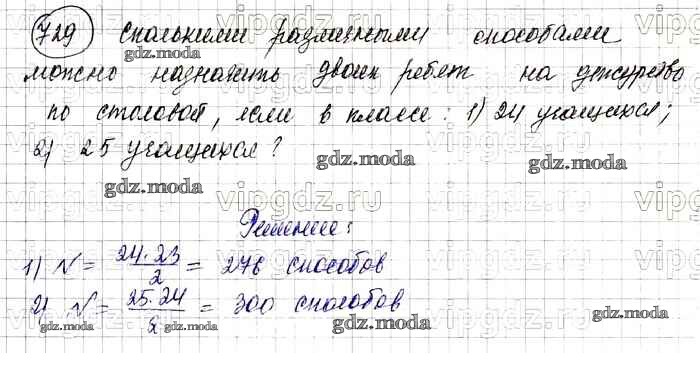 729 Сколькими различными способами
можно назначить двоих ребят на дежурство
по столовой, если в классе: 1) 24 учащихся;
2) 25 учащихся?
Решение:
1) N = 24·23/2 = 276 способов
2) N = 25·24/2 = 300 способов
vipgdz.ru
gdz.moda